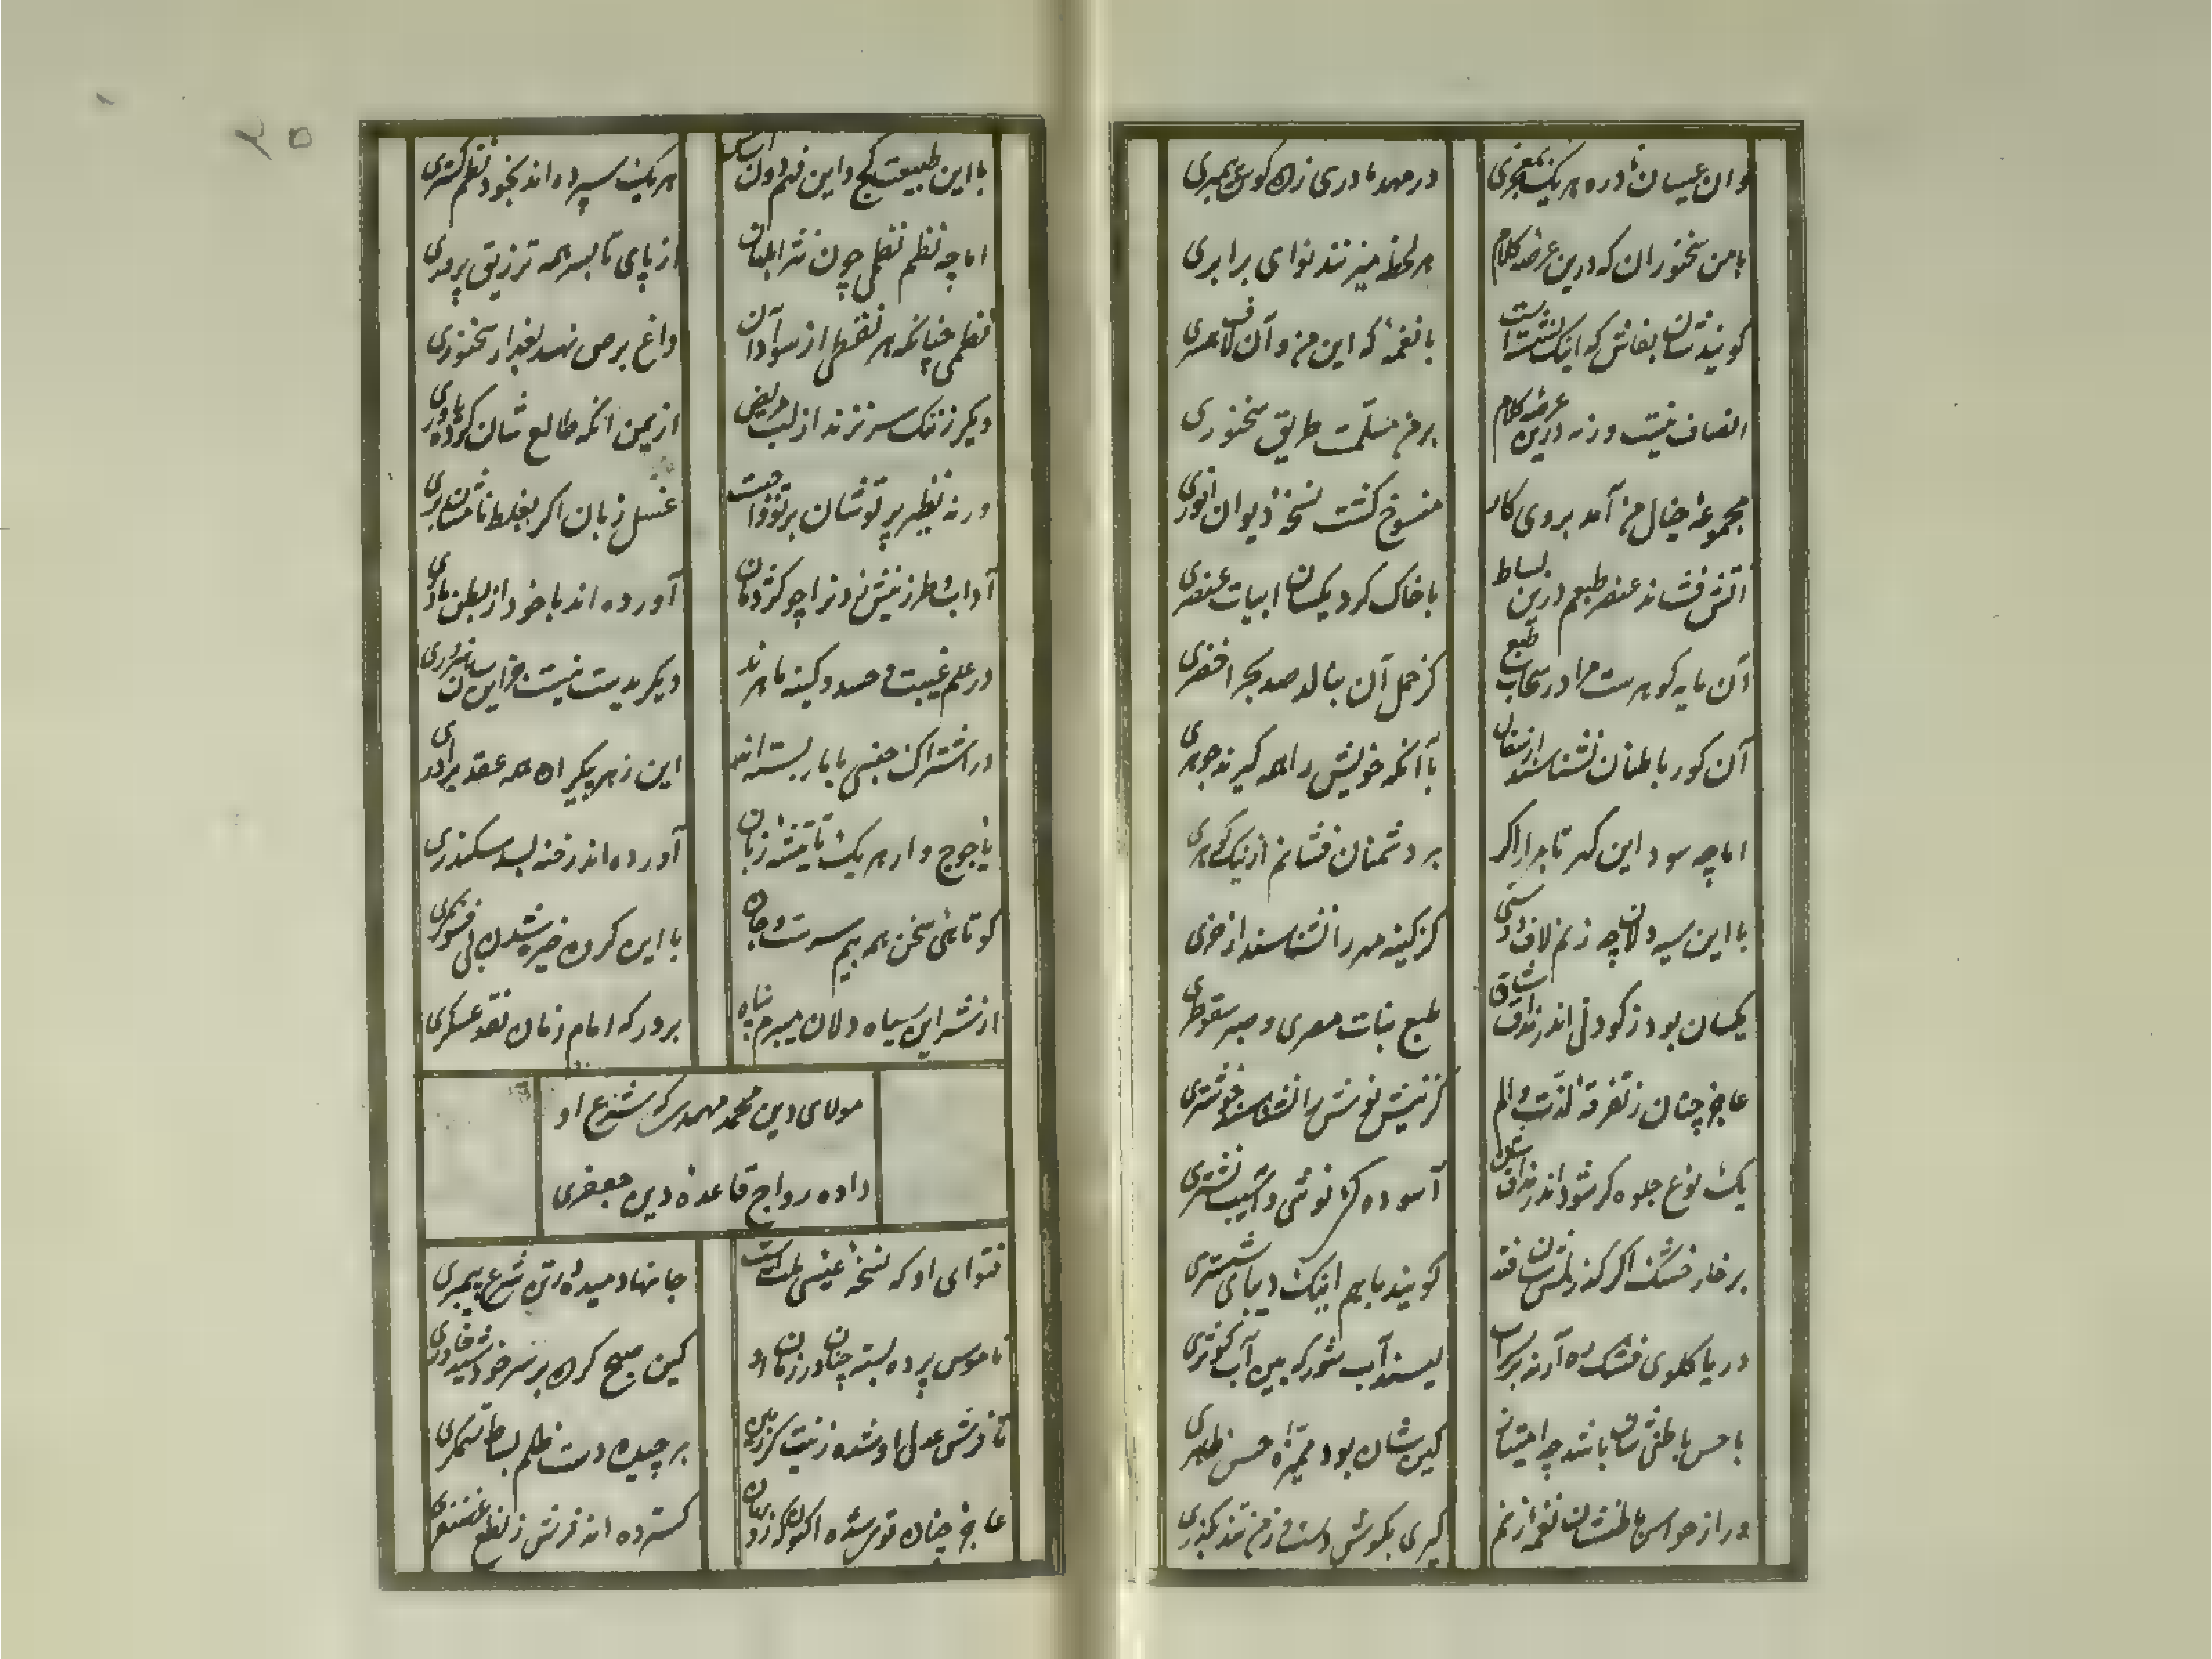 وان عیسیان نادره هر یک بمعجزی
در مهد مادری زده کوس پیمبری
با من سخنوران که درین عرصه کلام
هر لحظه میزنند نوای برابری
کویند شان بفاش که اینک نشسته است
با نغمه که این من و آن لاف همسری
انصاف نیست ورنه درین عرضه کلام
بر من مسلمست طریق سخنوری
مجموعه خیال من آمد بروی کار
منسوخ کشت نسخه دیوان انوری
آتش فشاند عنصر طبعم درین بساط
با خاک کرد یکسان ابیات عنصری
آن مایه کوهرست مرا در سحاب طبع
کز حمل آن بنالد صد بحر اخضری
آن کور باطنان نشناسند از سفال
با آنکه خویش را همه کیرند جوهری
اما چه سود این کهر تابدار اکر
بر دشمنان فشانم از نیک کوهری
با این سیه دلان چه زنم لاف دوستی
کز کینه مهر را نشناسند از خری
یکسان بود ز کودنی اندر مذاق شان
طبع نبات مصری و صبر سقوطری
عاجز چنان ز تفرقه لذت و الم
کز نیش نوش را نشناسند خوشتری
یک نوع جلوه کر شود اندر مذاق شان
آسوده کی نوشی و آسیب نشتری
بر خار خشک اکر کذر فلس شان فتد
کویند با هم اینک دیبای ششتری
در با کلوی خشک ره آرند بر سراب
لیسند آب شور که بین آب کوثری
با حس باطنی شان باشد چه امتیاز
کین شان بود ممیزه حس ظاهری
ور از حواس باطنشان نغمه از نم
کیری بکوش دست و ز من تند بکذری
با این طبیعت کج و این فهم دون اساس
هر یک سپرده اند بخود نظم کستری
اما چه نظم نظمی چون نثر ابلهان
از پای تا بسر همه ترزیق پروری
نظمی چنانکه هر نقطی از سواد آن
داغ برص نهد بعذار سخنوری
دیکر زنک سر نزند از لب مریض
از یمن آنکه طالع شان کرده یاوری
ورنه نظیر پرتوشان برنتواخت
غسل زبان اکر بغلط نامشان بری
آداب طرز نیش زدن را چو کژدمان
آورده اند با خود از بطن مادری
در علم غیبت و حسد و کینه ماهرند
دیکر بدیست نیست جز این سان هنروری
در اشتراک جنسی با مار بسته اند
این زهر پیکران همه عقد برادری
یاجوج وار هر یک با تیشه زبان
آورده اند رخنه بسد سکندری
کوتاهی سخن همه بیم سرست و جان
با این کروه خیره شدن پی فسونکری
از شر این سیاه دلان میبرم پناه
بر درکه امام زمان نقد عسکری
مولای دین محمد مهدی که شرع او
داده رواج قاعده دین جعفری
فتوای او که نسخه عیسی ملت است
جانها دمیده در تن شرع پیمبری
ناموس پرده بسته چنان در زمان او
کین صبح کرده بر سر خورشید چادری
تا فرش عدل او شده زینت کر زمین
برچیده دست ظلم بساط ستمکری
عاجز چنان قوی شده اکنون که روبهان
کسترده اند فرش ز نطع غضنفری
۲۵